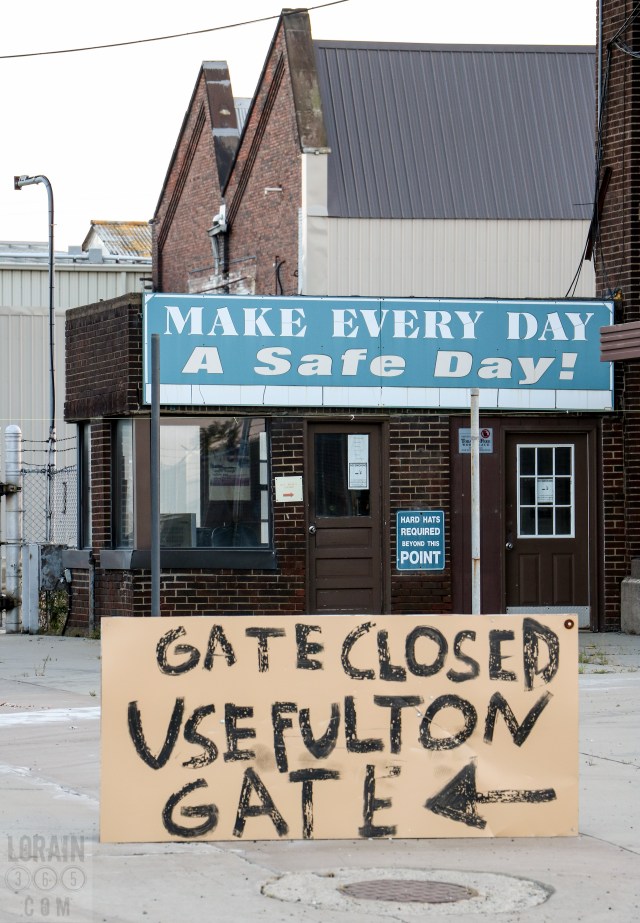 MAKE EVERY DAY
A Safe Day!
HARD HATS
REQUIRED
BEYOND THIS
POINT
GATE CLOSED
USE FULTON
GATE
LORAIN
365
COM